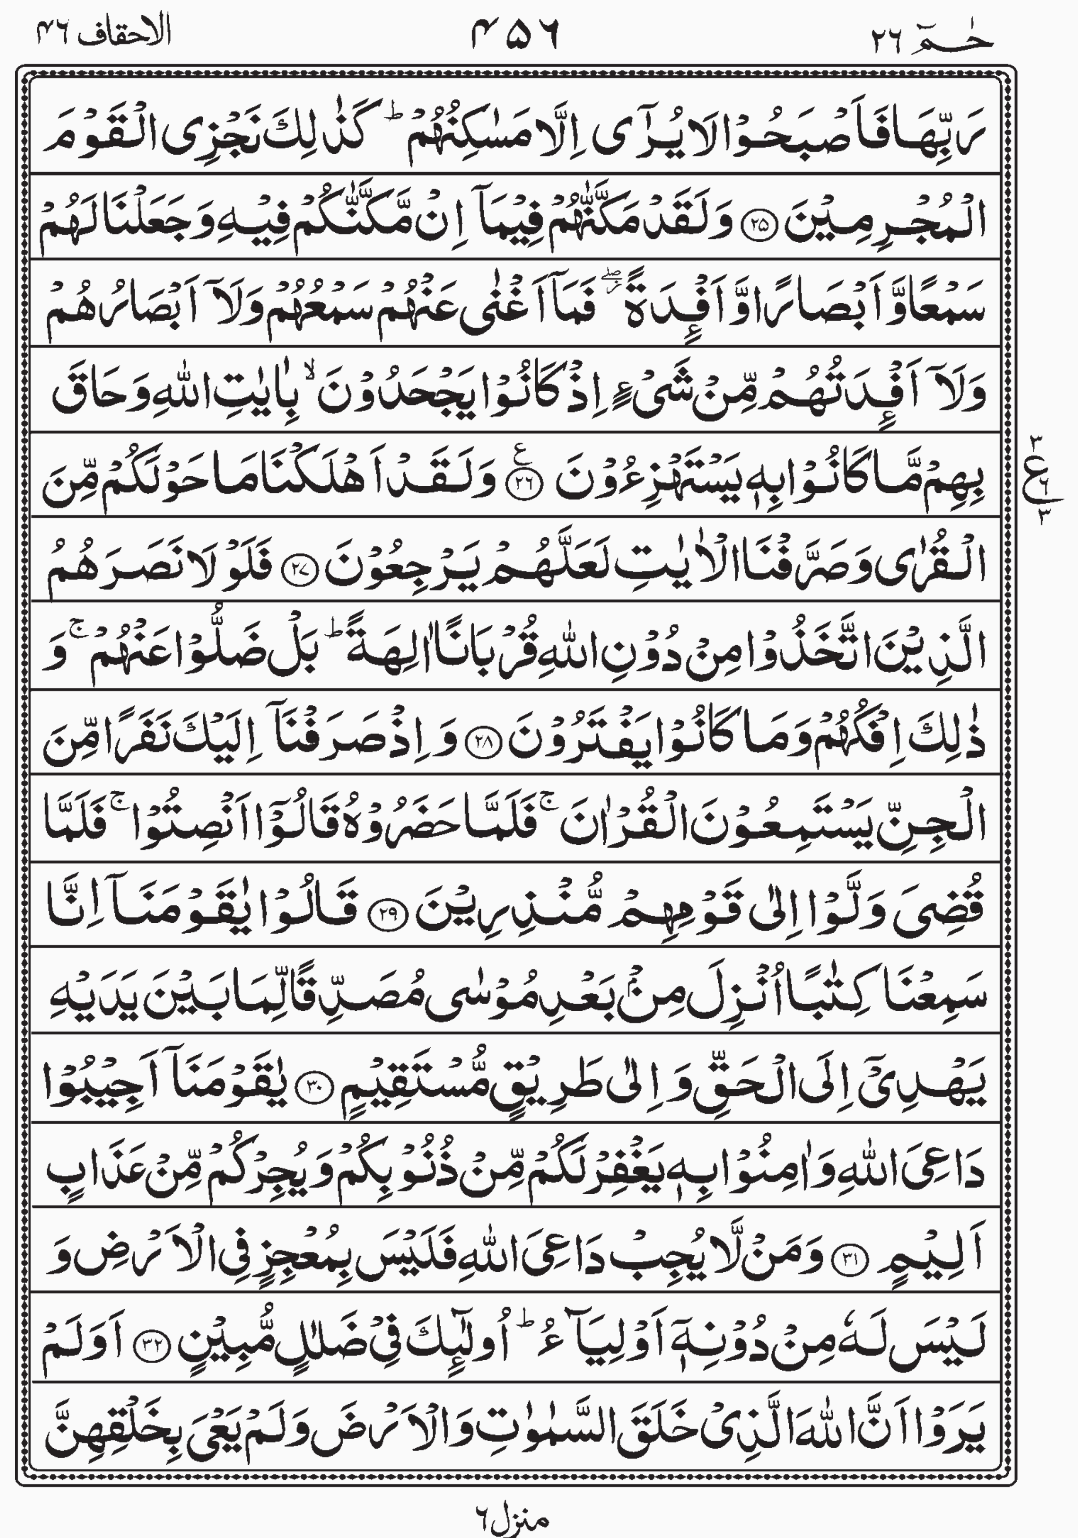 حٰمٓ ٢٦
۴۵۶
الاحقاف ۴۶
رَبِّهَا فَاَصْبَحُوْا لَا يُرٰٓى اِلَّا مَسٰكِنُهُمْ ؕ كَذٰلِكَ نَجْزِى الْقَوْمَ
الْمُجْرِمِيْنَ ۝۲۵ وَلَقَدْ مَكَّنّٰهُمْ فِيْمَاۤ اِنْ مَّكَّنّٰكُمْ فِيْهِ وَجَعَلْنَا لَهُمْ
سَمْعًا وَّاَبْصَارًا وَّاَفْـِٕدَةً ۖؗ فَمَاۤ اَغْنٰى عَنْهُمْ سَمْعُهُمْ وَلَاۤ اَبْصَارُهُمْ
وَلَاۤ اَفْـِٕدَتُهُمْ مِّنْ شَىْءٍ اِذْ كَانُوْا يَجْحَدُوْنَ ۙ بِاٰيٰتِ اللّٰهِ وَحَاقَ
بِهِمْ مَّا كَانُوْا بِهٖ يَسْتَهْزِءُوْنَ ۝۲۶ ع وَلَقَدْ اَهْلَكْنَا مَا حَوْلَكُمْ مِّنَ
۳ ع ۶ ۳
الْقُرٰى وَصَرَّفْنَا الْاٰيٰتِ لَعَلَّهُمْ يَرْجِعُوْنَ ۝۲۷ فَلَوْلَا نَصَرَهُمُ
الَّذِيْنَ اتَّخَذُوْا مِنْ دُوْنِ اللّٰهِ قُرْبَانًا اٰلِهَةً ؕ بَلْ ضَلُّوْا عَنْهُمْ ۚ وَ
ذٰلِكَ اِفْكُهُمْ وَمَا كَانُوْا يَفْتَرُوْنَ ۝۲۸ وَاِذْ صَرَفْنَاۤ اِلَيْكَ نَفَرًا مِّنَ
الْجِنِّ يَسْتَمِعُوْنَ الْقُرْاٰنَ ۚ فَلَمَّا حَضَرُوْهُ قَالُوْۤا اَنْصِتُوْا ۚ فَلَمَّا
قُضِىَ وَلَّوْا اِلٰى قَوْمِهِمْ مُّنْذِرِيْنَ ۝۲۹ قَالُوْا يٰقَوْمَنَاۤ اِنَّا
سَمِعْنَا كِتٰبًا اُنْزِلَ مِنْۢ بَعْدِ مُوْسٰى مُصَدِّقًا لِّمَا بَيْنَ يَدَيْهِ
يَهْدِىْۤ اِلَى الْحَقِّ وَاِلٰى طَرِيْقٍ مُّسْتَقِيْمٍ ۝۳۰ يٰقَوْمَنَاۤ اَجِيْبُوْا
دَاعِىَ اللّٰهِ وَاٰمِنُوْا بِهٖ يَغْفِرْ لَكُمْ مِّنْ ذُنُوْبِكُمْ وَيُجِرْكُمْ مِّنْ عَذَابٍ
اَلِيْمٍ ۝۳۱ وَمَنْ لَّا يُجِبْ دَاعِىَ اللّٰهِ فَلَيْسَ بِمُعْجِزٍ فِى الْاَرْضِ وَ
لَيْسَ لَهٗ مِنْ دُوْنِهٖۤ اَوْلِيَآءُ ؕ اُولٰٓئِكَ فِىْ ضَلٰلٍ مُّبِيْنٍ ۝۳۲ اَوَلَمْ
يَرَوْا اَنَّ اللّٰهَ الَّذِىْ خَلَقَ السَّمٰوٰتِ وَالْاَرْضَ وَلَمْ يَعْىَ بِخَلْقِهِنَّ
منزل ٦